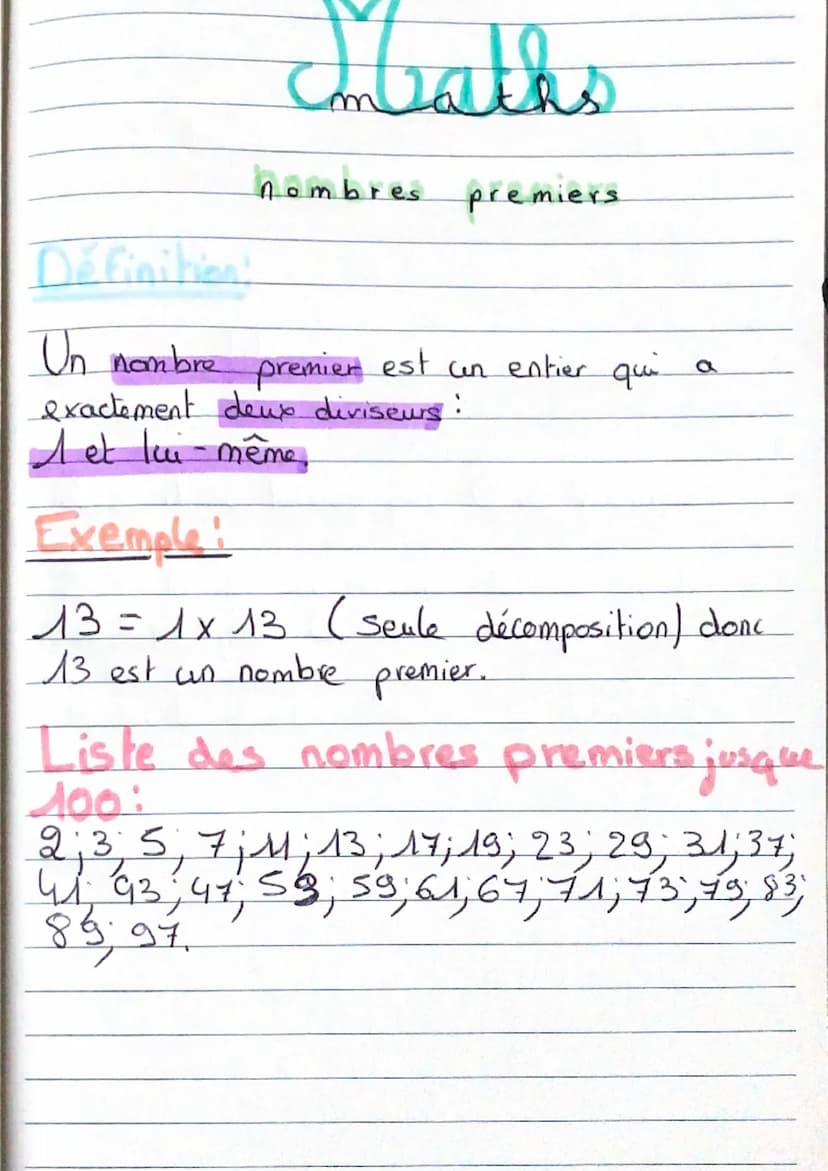 Maths
maths
nombres premiers
Définition:
Un nombre premier est un entier qui a
exactement deux diviseurs :
1 et lui-même.
Exemple :
13 = 1 x 13 (seule décomposition) donc
13 est un nombre premier.
Liste des nombres premiers jusque
100 :
2 ; 3 ; 5 ; 7 ; 11 ; 13 ; 17 ; 19 ; 23 ; 29 ; 31 ; 37 ;
41 ; 43 ; 47 ; 53 ; 59 ; 61 ; 67 ; 71 ; 73 ; 79 ; 83 ;
89 ; 97.